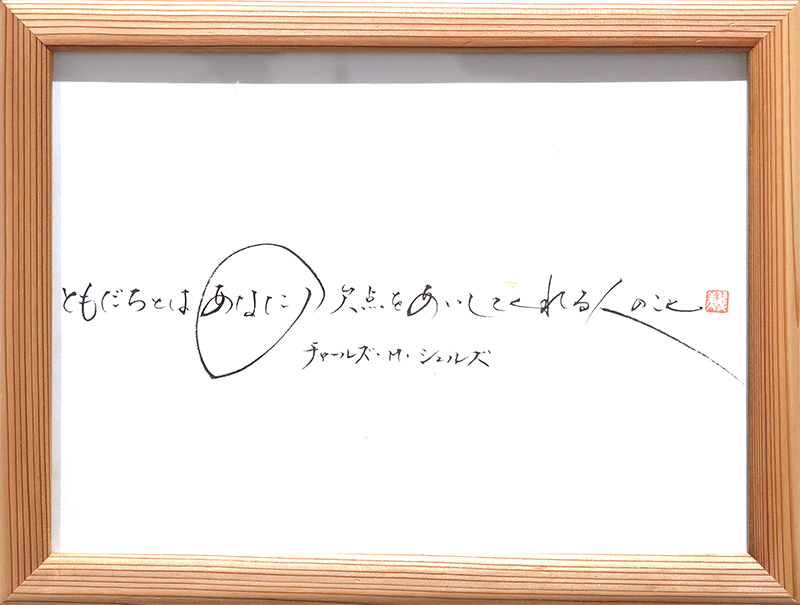 ともだちとはあなたの欠点をあいしてくれる人のこと
チャールズ・M・シュルズ